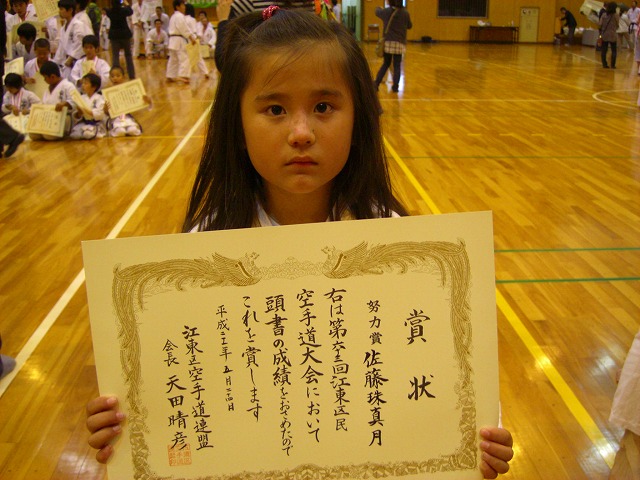 賞状
努力賞 佐藤珠真月
右は第六十三回江東区民
空手道大会において
頭書の成績をおさめたので
これを賞します
平成 年 五月二十四日
江東区空手道連盟
会長 天田晴彦